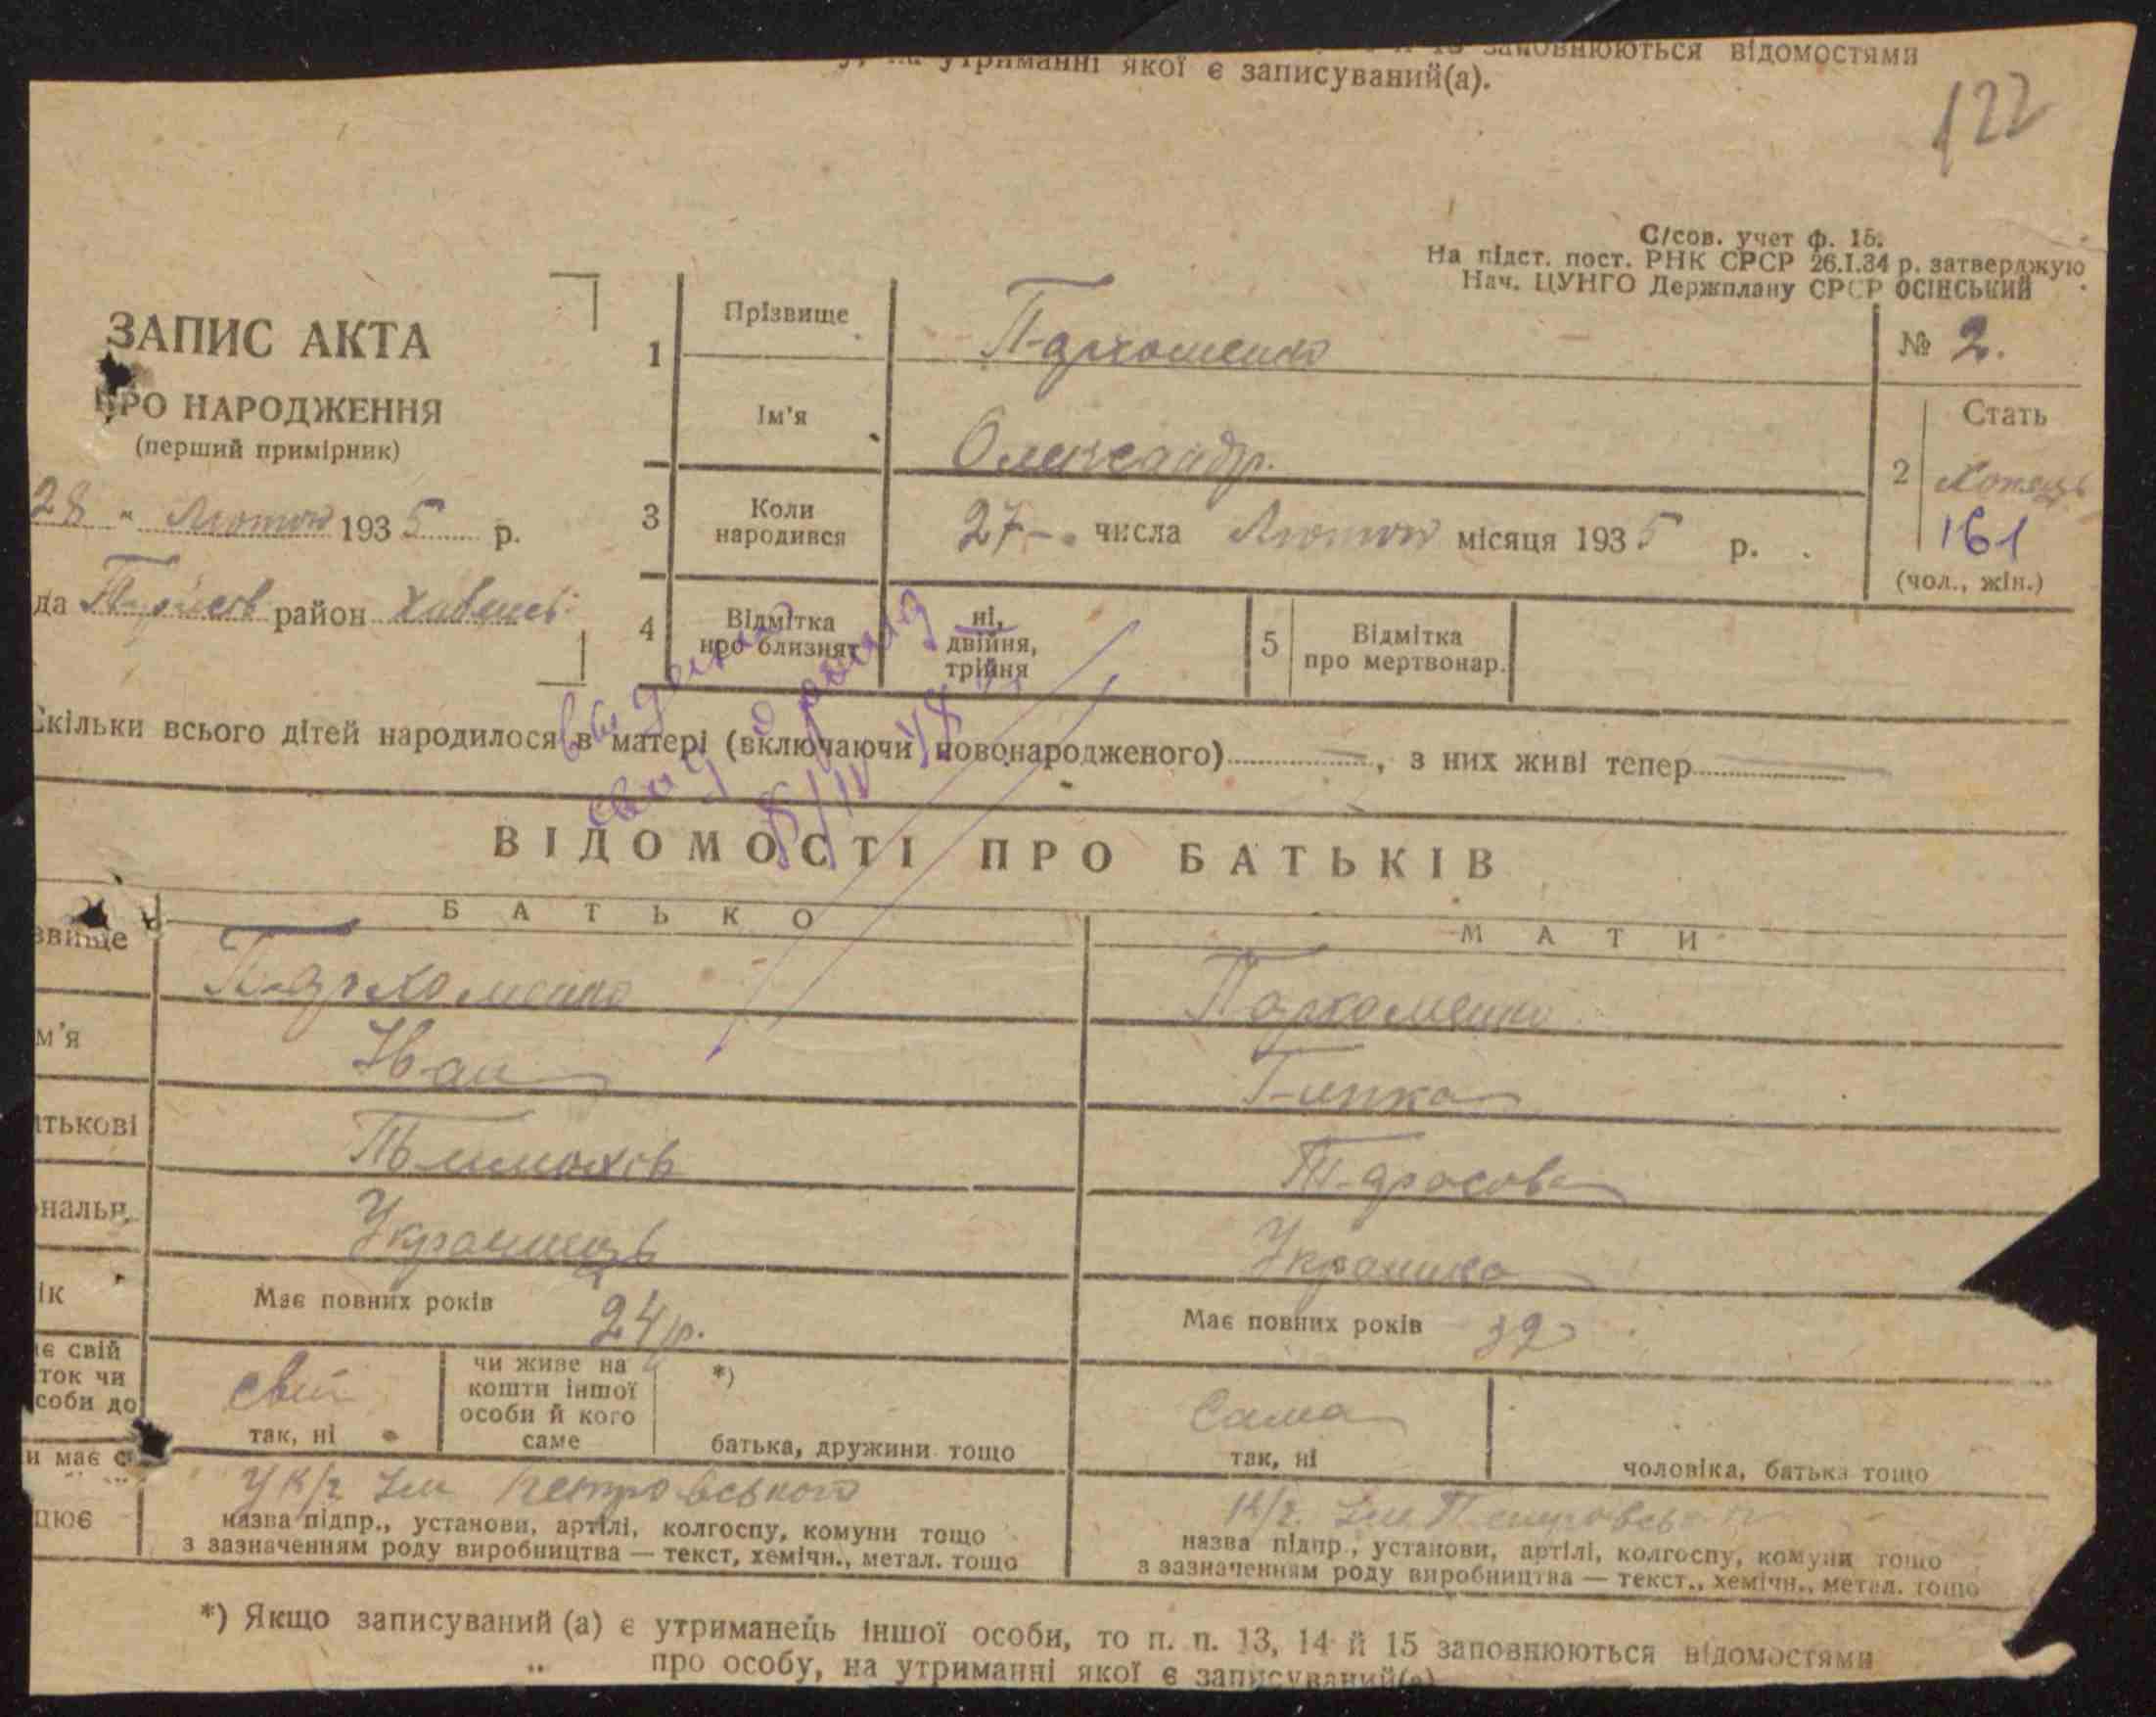 заповнюються відомостями
утриманні якої є записуваний(а).
122
С/сов. учет ф. 15.
На підст. пост. РНК СРСР 26.I.34 р. затверджую
Нач. ЦУНГО Держплану СРСР ОСІНСЬКИЙ
ЗАПИС АКТА
ПРО НАРОДЖЕННЯ
(перший примірник)
28 " Лютого 1935 р.
да район
1 Прізвище Пархоменко
№ 2.
Ім'я Олександр.
2 Стать Хлопець
161
(чол., жін.)
3 Коли народився 27 числа Лютого місяця 1935 р.
4 Відмітка про близнят ні, двійня, трійня
5 Відмітка про мертвонар.
Скільки всього дітей народилося в матері (включаючи новонародженого) — , з них живі тепер —
8/IV 48
ВІДОМОСТІ ПРО БАТЬКІВ
БАТЬКО
МАТИ
звище Пархоменко Пархоменко
м'я Іван
тькові Тарасова
нальн. Українець Українка
ік Має повних років 24 р. Має повних років 32
є свій
ток чи
соби до
свій
так, ні
чи живе на
кошти іншої
особи й кого
саме
*)
батька, дружини тощо
Сама
так, ні
чоловіка, батька тощо
и має с
цює
У к/г Ім Петровського
назва підпр., установи, артілі, колгоспу, комуни тощо
з зазначенням роду виробництва — текст, хемічн., метал. тощо
к/г. Ім Петровського
назва підпр., установи, артілі, колгоспу, комуни тощо
з зазначенням роду виробництва — текст., хемічн., метал. тощо
*) Якщо записуваний (а) є утриманець іншої особи, то п. п. 13, 14 й 15 заповнюються відомостями
про особу, на утриманні якої є записуваний(а)